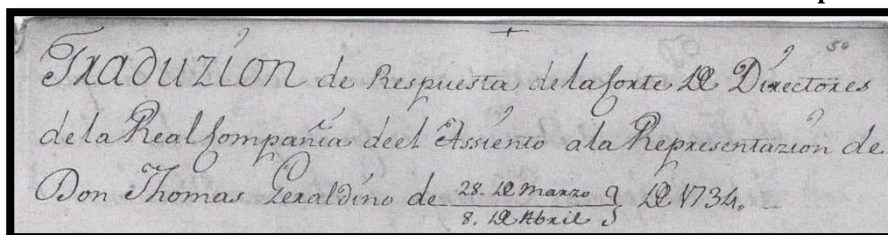 +
59
Traduzión de Respuesta de la Corte de Directores
de la Real Compañía deel Assiento a la Representazion de
Don Thomas Geraldino de 28. de Marzo
8. de Abril de 1734.